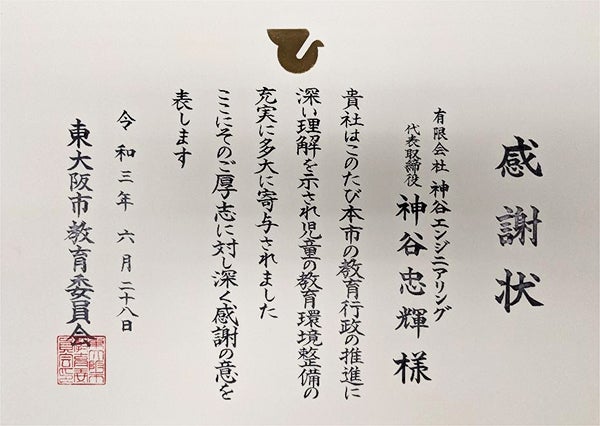 感謝状
有限会社 神谷エンジニアリング
代表取締役 神谷忠輝 様
貴社はこのたび本市の教育行政の推進に
深い理解を示され児童の教育環境整備の
充実に多大に寄与されました
ここにそのご厚志に対し深く感謝の意を
表します
令和三年六月二十八日
東大阪市教育委員会